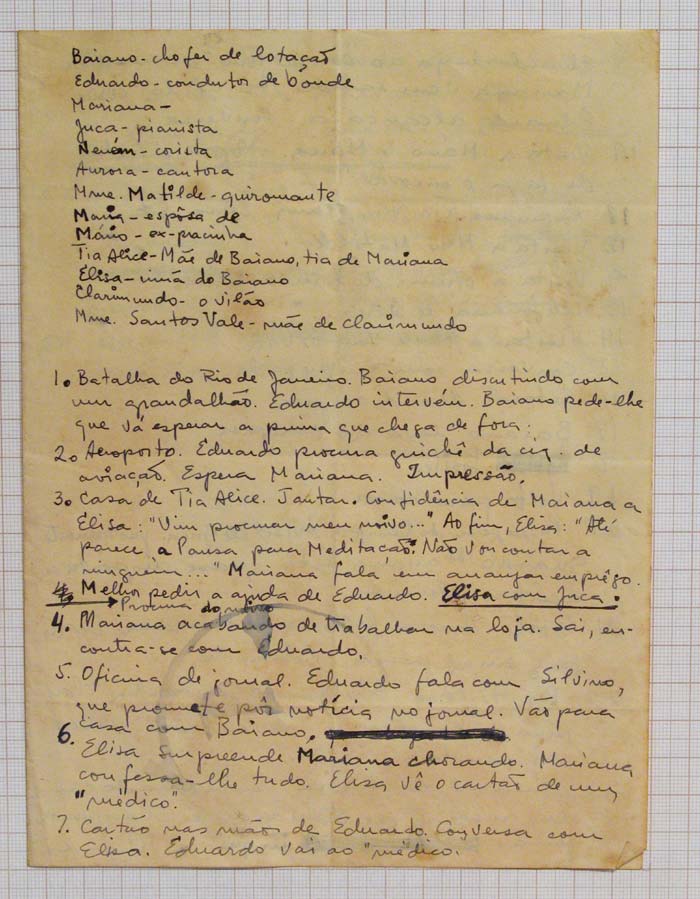 Baiano - chofer de lotação
Eduardo - condutor de bonde
Mariana -
Juca - pianista
Neném - corista
Aurora - cantora
Mme. Matilde - quiromante
Maria - espôsa de
Mário - ex-pracinha
Tia Alice - Mãe de Baiano, tia de Mariana
Elisa - irmã do Baiano
Clarimundo - o vilão
Mme. Santos Vale - mãe de Clarimundo
1. Batalha do Rio de Janeiro. Baiano discutindo com
um grandalhão. Eduardo intervém. Baiano pede-lhe
que vá esperar a prima que chega de fora.
2. Aeroporto. Eduardo procura guichê da cia. de
aviação. Espera Mariana. Impressão.
3. Casa de Tia Alice. Jantar. Confidência de Maiana a
Elisa: "Vim procurar meu noivo..." Ao fim, Elisa: "Até
parece a Pausa para Meditação. Não vou contar a
ninguém..." Mariana fala em arranjar emprêgo.
Melhor pedir a ajuda de Eduardo. Elisa com Juca.
Procura do noivo
4. Mariana acabando de trabalhar na loja. Sai, en-
contra-se com Eduardo.
5. Oficina de jornal. Eduardo fala com Silvino,
que promete pôr notícia no jornal. Vão para
casa com Baiano.
6. Elisa surpreende Mariana chorando. Mariana
confessa-lhe tudo. Elisa vê o cartão de um
"médico".
7. Cartão nas mãos de Eduardo. Conversa com
Elisa. Eduardo vai ao "médico.